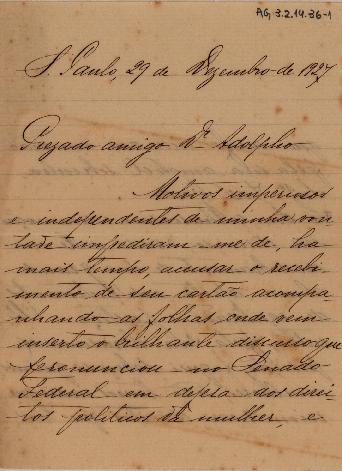 AG 3.2.14.36-1
S. Paulo, 29 de Dezembro de 1927
Prezado amigo Dr. Adolpho
Motivos imperiosos
e independentes de minha von
tade impediram-me de, ha
mais tempo, accusar o recebi
mento de seu cartão acompa
nhando as folhas onde vem
inserto o brilhante discurso que
pronunciou no Senado
Federal em defesa dos direi
tos politicos da mulher, e